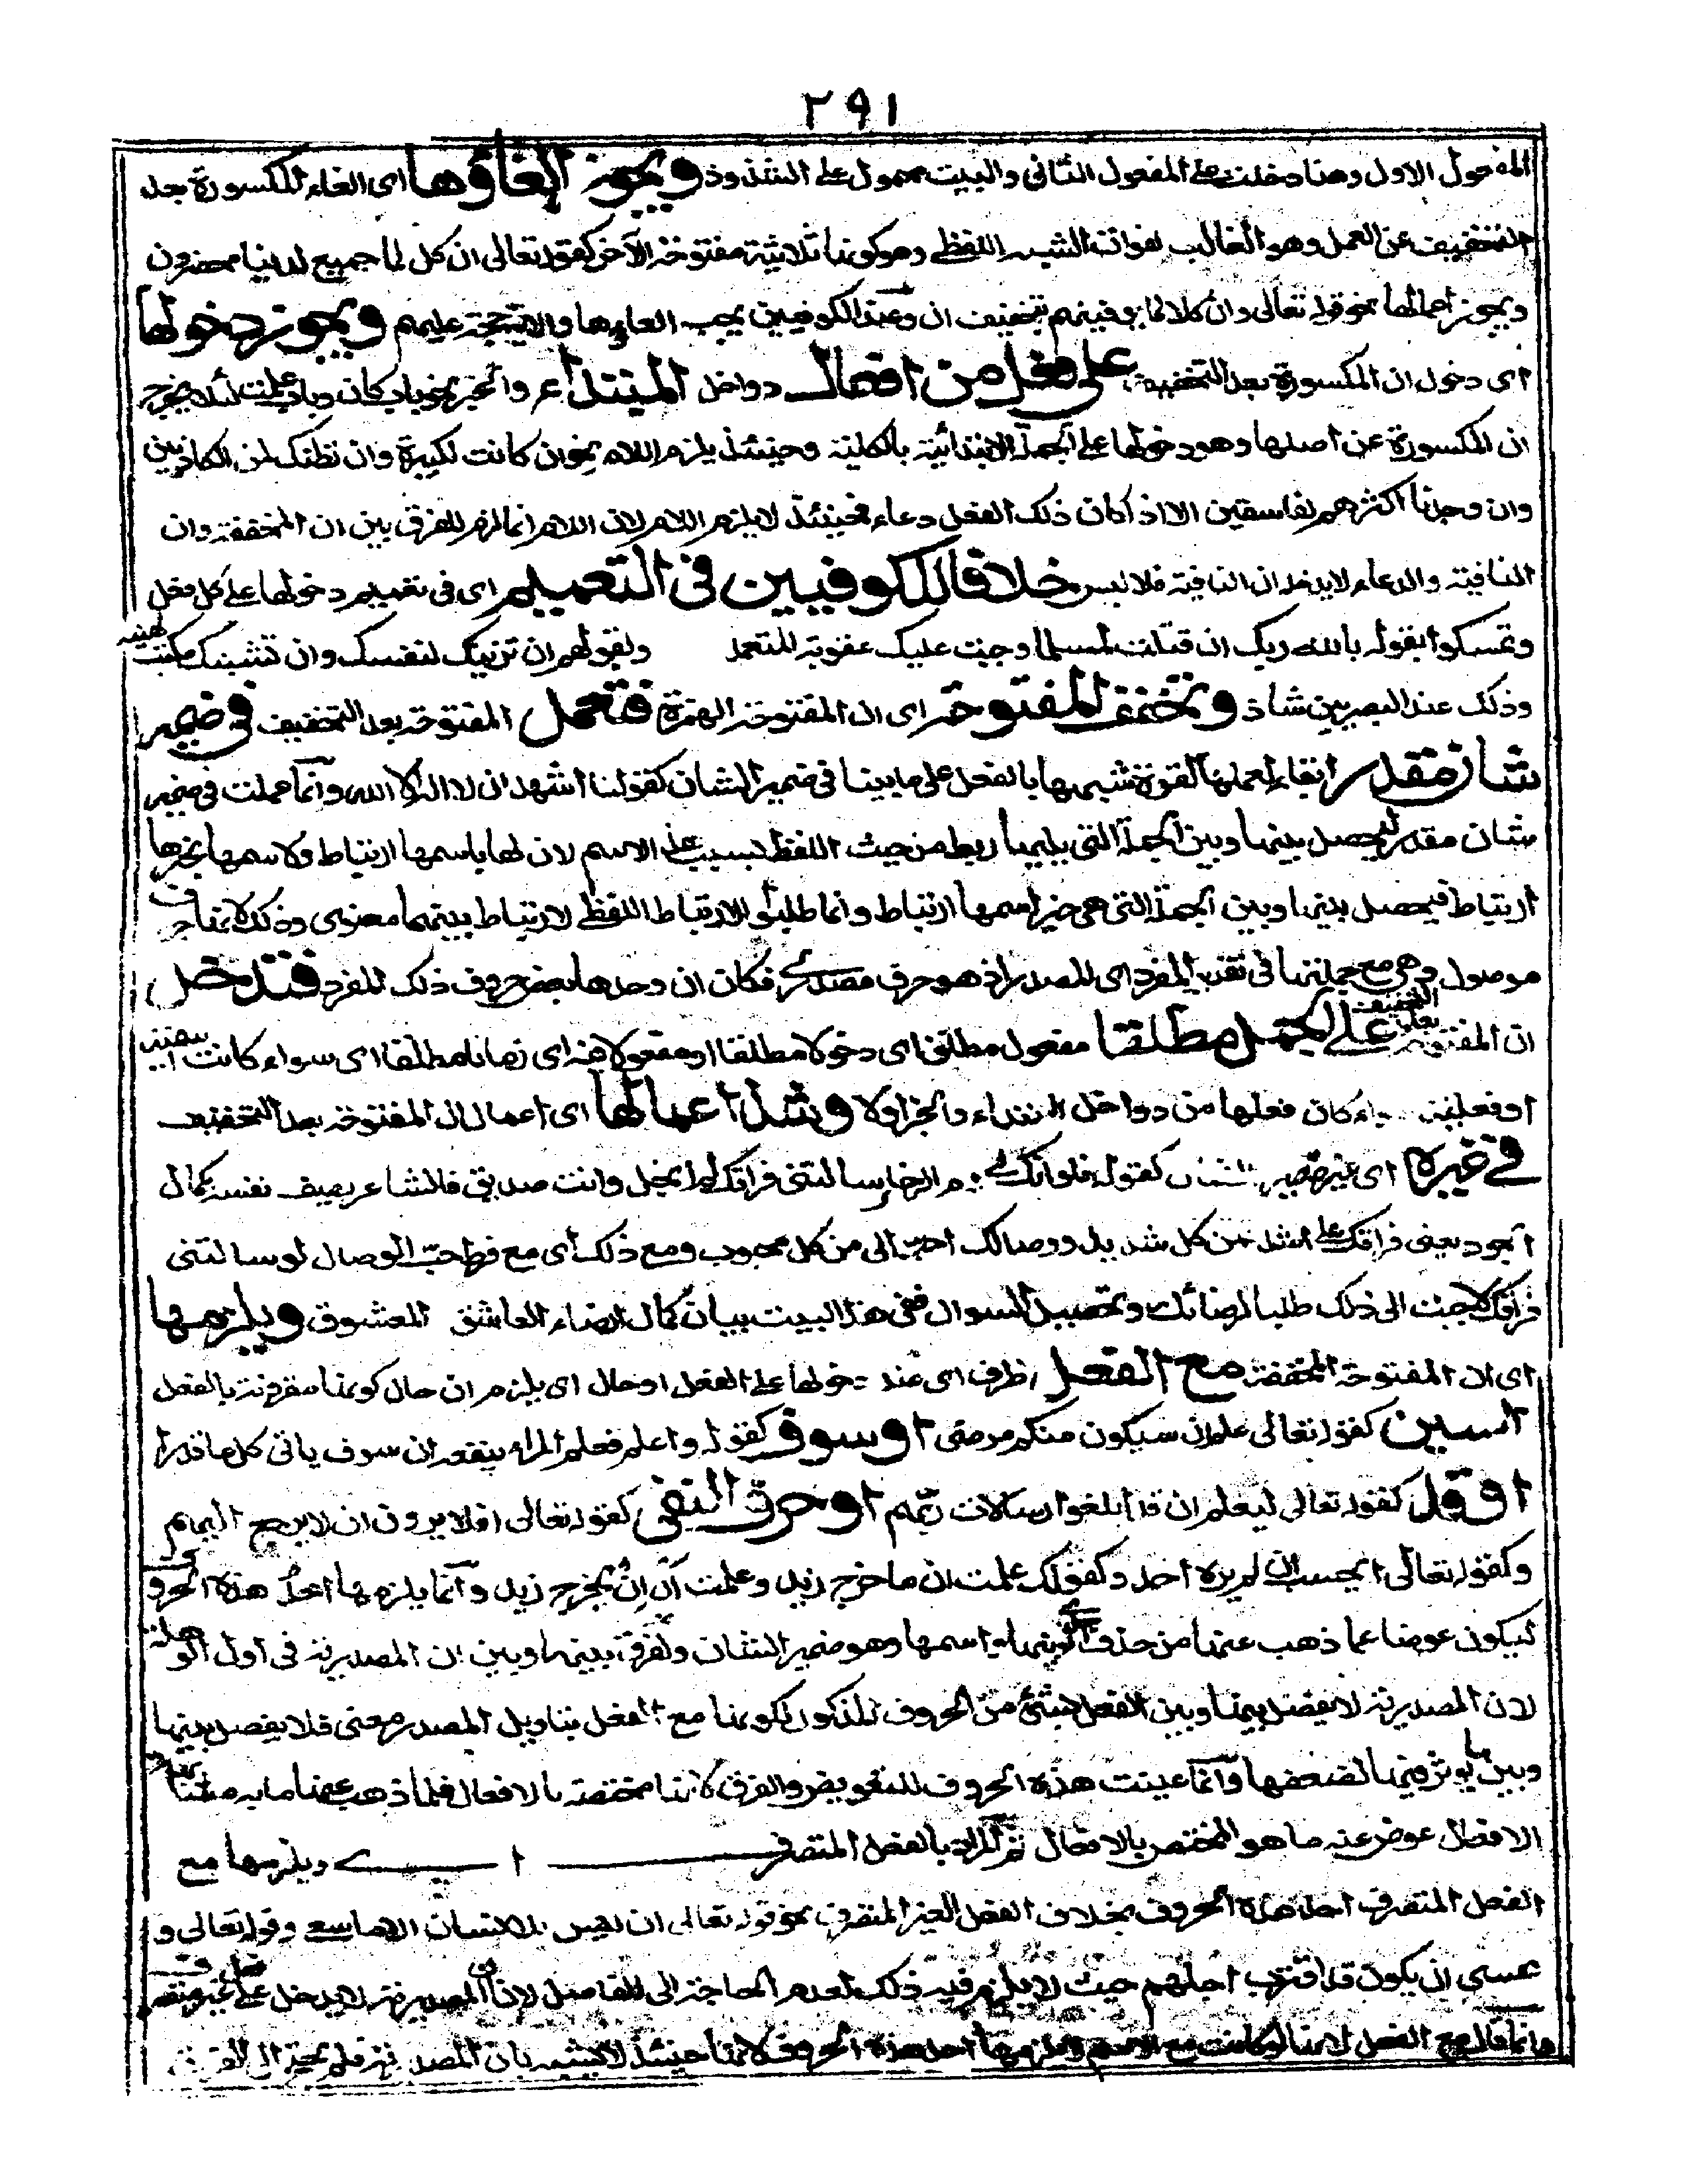 ٢٩١
المفعول الاول وهنا دخلت على المفعول الثانى والبيت محمول على الشذوذ ويجوز الغاؤها اى الغاء المكسورة بعد
التخفيف عن العمل وهو الغالب لفوات الشبه اللفظى وهو كونها ثلاثية مفتوحة الآخر كقوله تعالى ان كل لما جميع لدينا محضرون
ويجوز اعمالها نحو قوله تعالى وان كلا لما يوفينهم بتخفيف ان وعند الكوفيين يجب الغاءها والآية حجة عليهم ويجوز دخولها
اى دخول ان المكسورة بعد التخفيف على فعل من افعال دواخل المبتدأ والخبر نحو باب كان وباب علمت لئلا يخرج
ان المكسورة عن اصلها وهو دخولها على الجملة الابتدائية بالكلية وحينئذ يلزم اللام نحو ان كانت لكبيرة وان نظنك لمن الكاذبين
وان وجدنا اكثرهم لفاسقين الا اذا كان ذلك الفعل دعاء فحينئذ لا يلزم اللام لان اللام انما لزم للفرق بين ان المخففة وان
النافية والدعاء لا يدخله ان النافية فلا لبس خلافا للكوفيين فى التعميم اى فى تعميم دخولها على كل فعل
وتمسكوا بقوله بالله ربك ان قتلت لمسلما وجبت عليك عقوبة المتعمد ولقولهم ان تزينك لنفسك وان تشينك لهيه
وذلك عند البصريين شاذ وتخفف المفتوحة اى ان المفتوحة الهمزة فتعمل المفتوحة بعد التخفيف فى ضمير
شان مقدر ابقاء لعملها لقوة شبهها بالفعل على ما بينا فى ضمير الشان كقولنا اشهد ان لا اله الا الله وانما عملت فى ضمير
شان مقدر ليحصل بينها وبين الجملة التى يليها ربط من حيث اللفظ بسبب الاسم لان لها باسمها ارتباط ولاسمها بخبرها
ارتباط فيحصل بينها وبين الجملة التى هى خبر اسمها ارتباط وانما طلبوا الارتباط اللفظى لارتباط بينهما معنوى وذلك لانها حرف
موصول وهى مع جملتها فى تقدير المفرد اى المصدر اذ هو حرف مصدرى فكان ان وحدها بعض حروف ذلك المفرد فتدخل
ان المفتوحة بعد التخفيف على الجمل مطلقا مفعول مطلق اى دخولا مطلقا او مفعولا فيه اى زمانا مطلقا اى سواء كانت اسمية
او فعلية كان فعلها من دواخل المبتداء والخبر اولا وشذ اعمالها اى اعمال ان المفتوحة بعد التخفيف
فى غيره اى غير ضمير الشان كقوله فلو انك فى يوم الرخاء سالتنى فراقك لم ابخل وانت صديق فالشاعر يصف نفسه بكمال
الجود يعنى فراقك على اشد من كل شديد ووصالك احب الى من كل محبوب ومع ذلك اى مع فرط حب الوصال لو سالتنى
فراقك لاجبت الى ذلك طلبا لرضائك وتحصيل السوال ففى هذا البيت بيان كمال ارضاء العاشق المعشوق ويلزمها
اى ان المفتوحة المخففة مع الفعل ظرف اى عند دخولها على الفعل او حال اى يلزم ان حال كونها مقرونة بالفعل
السين كقوله تعالى علم ان سيكون منكم مرضى او سوف كقوله واعلم فعلم المرء ينفعه ان سوف ياتى كل ما قدرا
او قد كقوله تعالى ليعلم ان قد ابلغوا رسالات ربهم او حرف النفى كقوله تعالى افلا يرون ان لا يرجع اليهم
وكقوله تعالى ايحسب ان لم يره احد وكقولك علمت ان ما خرج زيد وعلمت ان ان يخرج زيد وانما يلزمها احد هذه الحروف
ليكون عوضا عما ذهب عنها من حذف اسمها وهو ضمير الشان ولفرقة بينها وبين ان المصدرية فى اول الوهلة
لان المصدرية لا يفصل بينها وبين الفعل بشئ من الحروف المذكور لكونها مع الفعل بتاويل المصدر معنى فلا يفصل بينها
وبين ما يوثر فيها لضعفها وانما عينت هذه الحروف للتعويض والفرق لانها مختصة بالافعال فلما ذهب عنها ما به
الافعال عوض عنه ما هو المختص بالافعال ثم المراد بالفعل المتصرف ا ى ويلزمها مع
الفعل المتصرف احد هذه الحروف بخلاف الفعل الغير المتصرف نحو قوله تعالى ان ليس للانسان الا ما سعى وقوله تعالى و
عسى ان يكون قد اقترب اجلهم حيث لا يلزم فيه ذلك لعدم الحاجة الى الفاصل لان المصدرية لا يدخل على غير متصرف
وانما قال مع الفعل لانها لو كانت مع الاسم لم يلزمها احد هذه الحروف لانها حينئذ لا يشبه بان المصدرية فلم يحتج الى الفرق